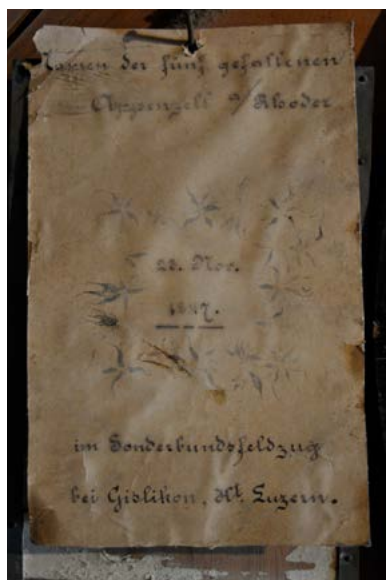 Namen der fünf gefallenen
Appenzell a/Rhoder
23. Nov.
1847.
im Sonderbundsfeldzug
bei Gislikon, Kt. Luzern.